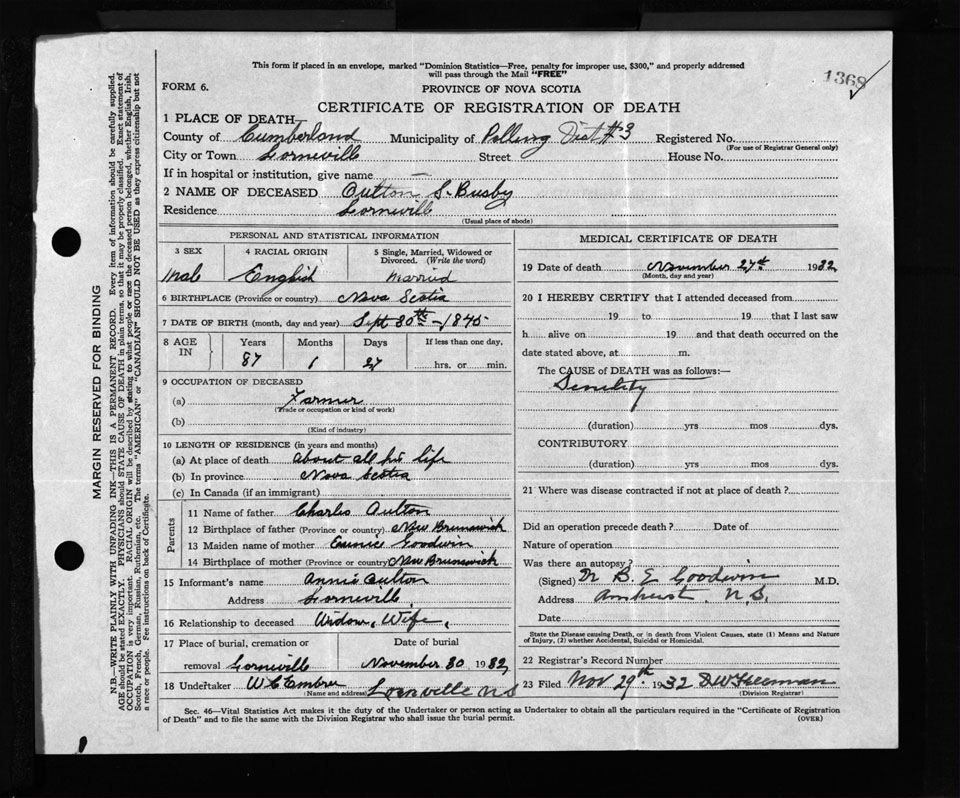 This form if placed in an envelope, marked "Dominion Statistics—Free, penalty for improper use, $300," and properly addressed
will pass through the Mail "FREE"
1368
FORM 6.
PROVINCE OF NOVA SCOTIA
CERTIFICATE OF REGISTRATION OF DEATH
1 PLACE OF DEATH—
County of Cumberland Municipality of Polling Dist #3 Registered No.
(For use of Registrar General only)
City or Town Lorneville Street House No.
If in hospital or institution, give name —
2 NAME OF DECEASED Oulton S. Busby
Residence Lorneville
(Usual place of abode)
PERSONAL AND STATISTICAL INFORMATION
3 SEX 4 RACIAL ORIGIN 5 Single, Married, Widowed or
Divorced. (Write the word)
Male English Married
6 BIRTHPLACE (Province or country) Nova Scotia
7 DATE OF BIRTH (month, day and year) Sept 30th - 1845
8 AGE IN Years Months Days If less than one day,
87 1 27 hrs. or min.
9 OCCUPATION OF DECEASED
(a) Farmer
(Trade or occupation or kind of work)
(b)
(Kind of industry)
10 LENGTH OF RESIDENCE (in years and months)
(a) At place of death about all his life
(b) In province Nova Scotia
(c) In Canada (if an immigrant)
Parents
11 Name of father Charles Oulton
12 Birthplace of father (Province or country) New Brunswick
13 Maiden name of mother Eunice Goodwin
14 Birthplace of mother (Province or country) New Brunswick
15 Informant's name Annie Oulton
Address Lorneville
16 Relationship to deceased Widow, Wife,
17 Place of burial, cremation or Date of burial
removal Lorneville November 30 1932
18 Undertaker W C Embree
(Name and address) Lornville N S
MEDICAL CERTIFICATE OF DEATH
19 Date of death November 27th 1932
(Month, day and year)
20 I HEREBY CERTIFY that I attended deceased from
19 to 19 that I last saw
h alive on 19 and that death occurred on the
date stated above, at m.
The CAUSE OF DEATH was as follows:—
Senility
(duration) yrs mos dys.
CONTRIBUTORY
(duration) yrs. mos. dys.
21 Where was disease contracted if not at place of death?
Did an operation precede death? Date of
Nature of operation
Was there an autopsy?
(Signed) Dr B. E Goodwin M.D.
Address Amherst, N.S.
Date
State the Disease causing Death, or in death from Violent Causes, state (1) Means and Nature
of Injury, (2) whether Accidental, Suicidal or Homicidal.
22 Registrar's Record Number
23 Filed Nov 29th 1932 D W Freeman
(Division Registrar)
Sec. 46—Vital Statistics Act makes it the duty of the Undertaker or person acting as Undertaker to obtain all the particulars required in the "Certificate of Registration
of Death" and to file the same with the Division Registrar who shall issue the burial permit.
(OVER)
MARGIN RESERVED FOR BINDING
N.B.—WRITE PLAINLY WITH UNFADING INK—THIS IS A PERMANENT RECORD. Every item of information should be carefully supplied.
AGE should be stated EXACTLY. PHYSICIANS should STATE CAUSE OF DEATH in plain terms, so that it may be properly classified. Exact statement of
OCCUPATION is very important. RACIAL ORIGIN will be described by stating to what people or race the deceased person belonged, whether English, Irish,
Scotch, French, German, Russian, Ruthenian, etc. The terms "AMERICAN" or "CANADIAN" SHOULD NOT BE USED as they express citizenship but not
a race or people. See instructions on back of Certificate.